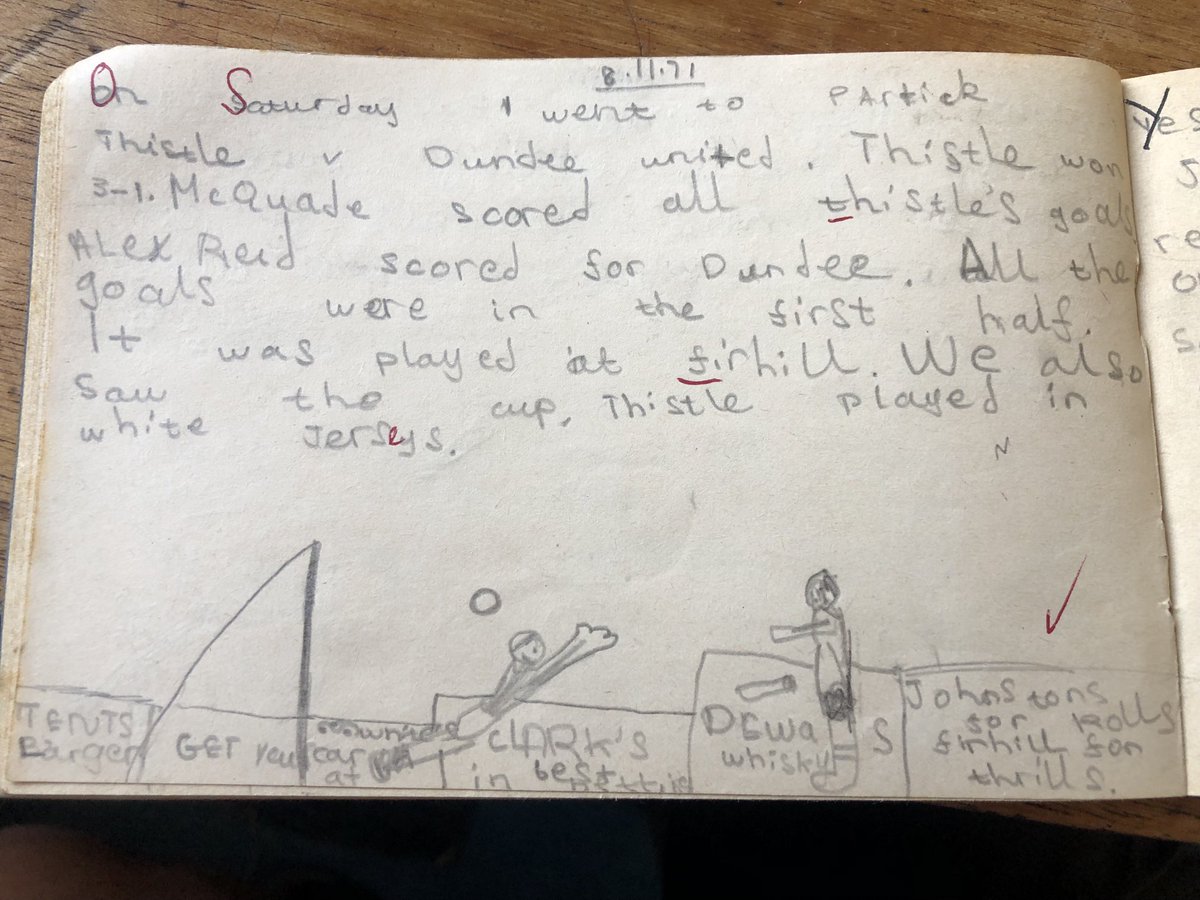 8.11.71
On Saturday I went to Partick
Thistle v Dundee united. Thistle won
3-1. McQuade scored all thistle's goals
ALEX Reid scored for Dundee. All the
goals were in the first half.
It was played at firhill. We also
saw the cup, Thistle played in
white Jerseys.
TENTS
Larger
GET your car
at
CLARK'S
best
in
DEWA S
whisky
Johnstons
for Rolls
firhill for
thrills.
yes